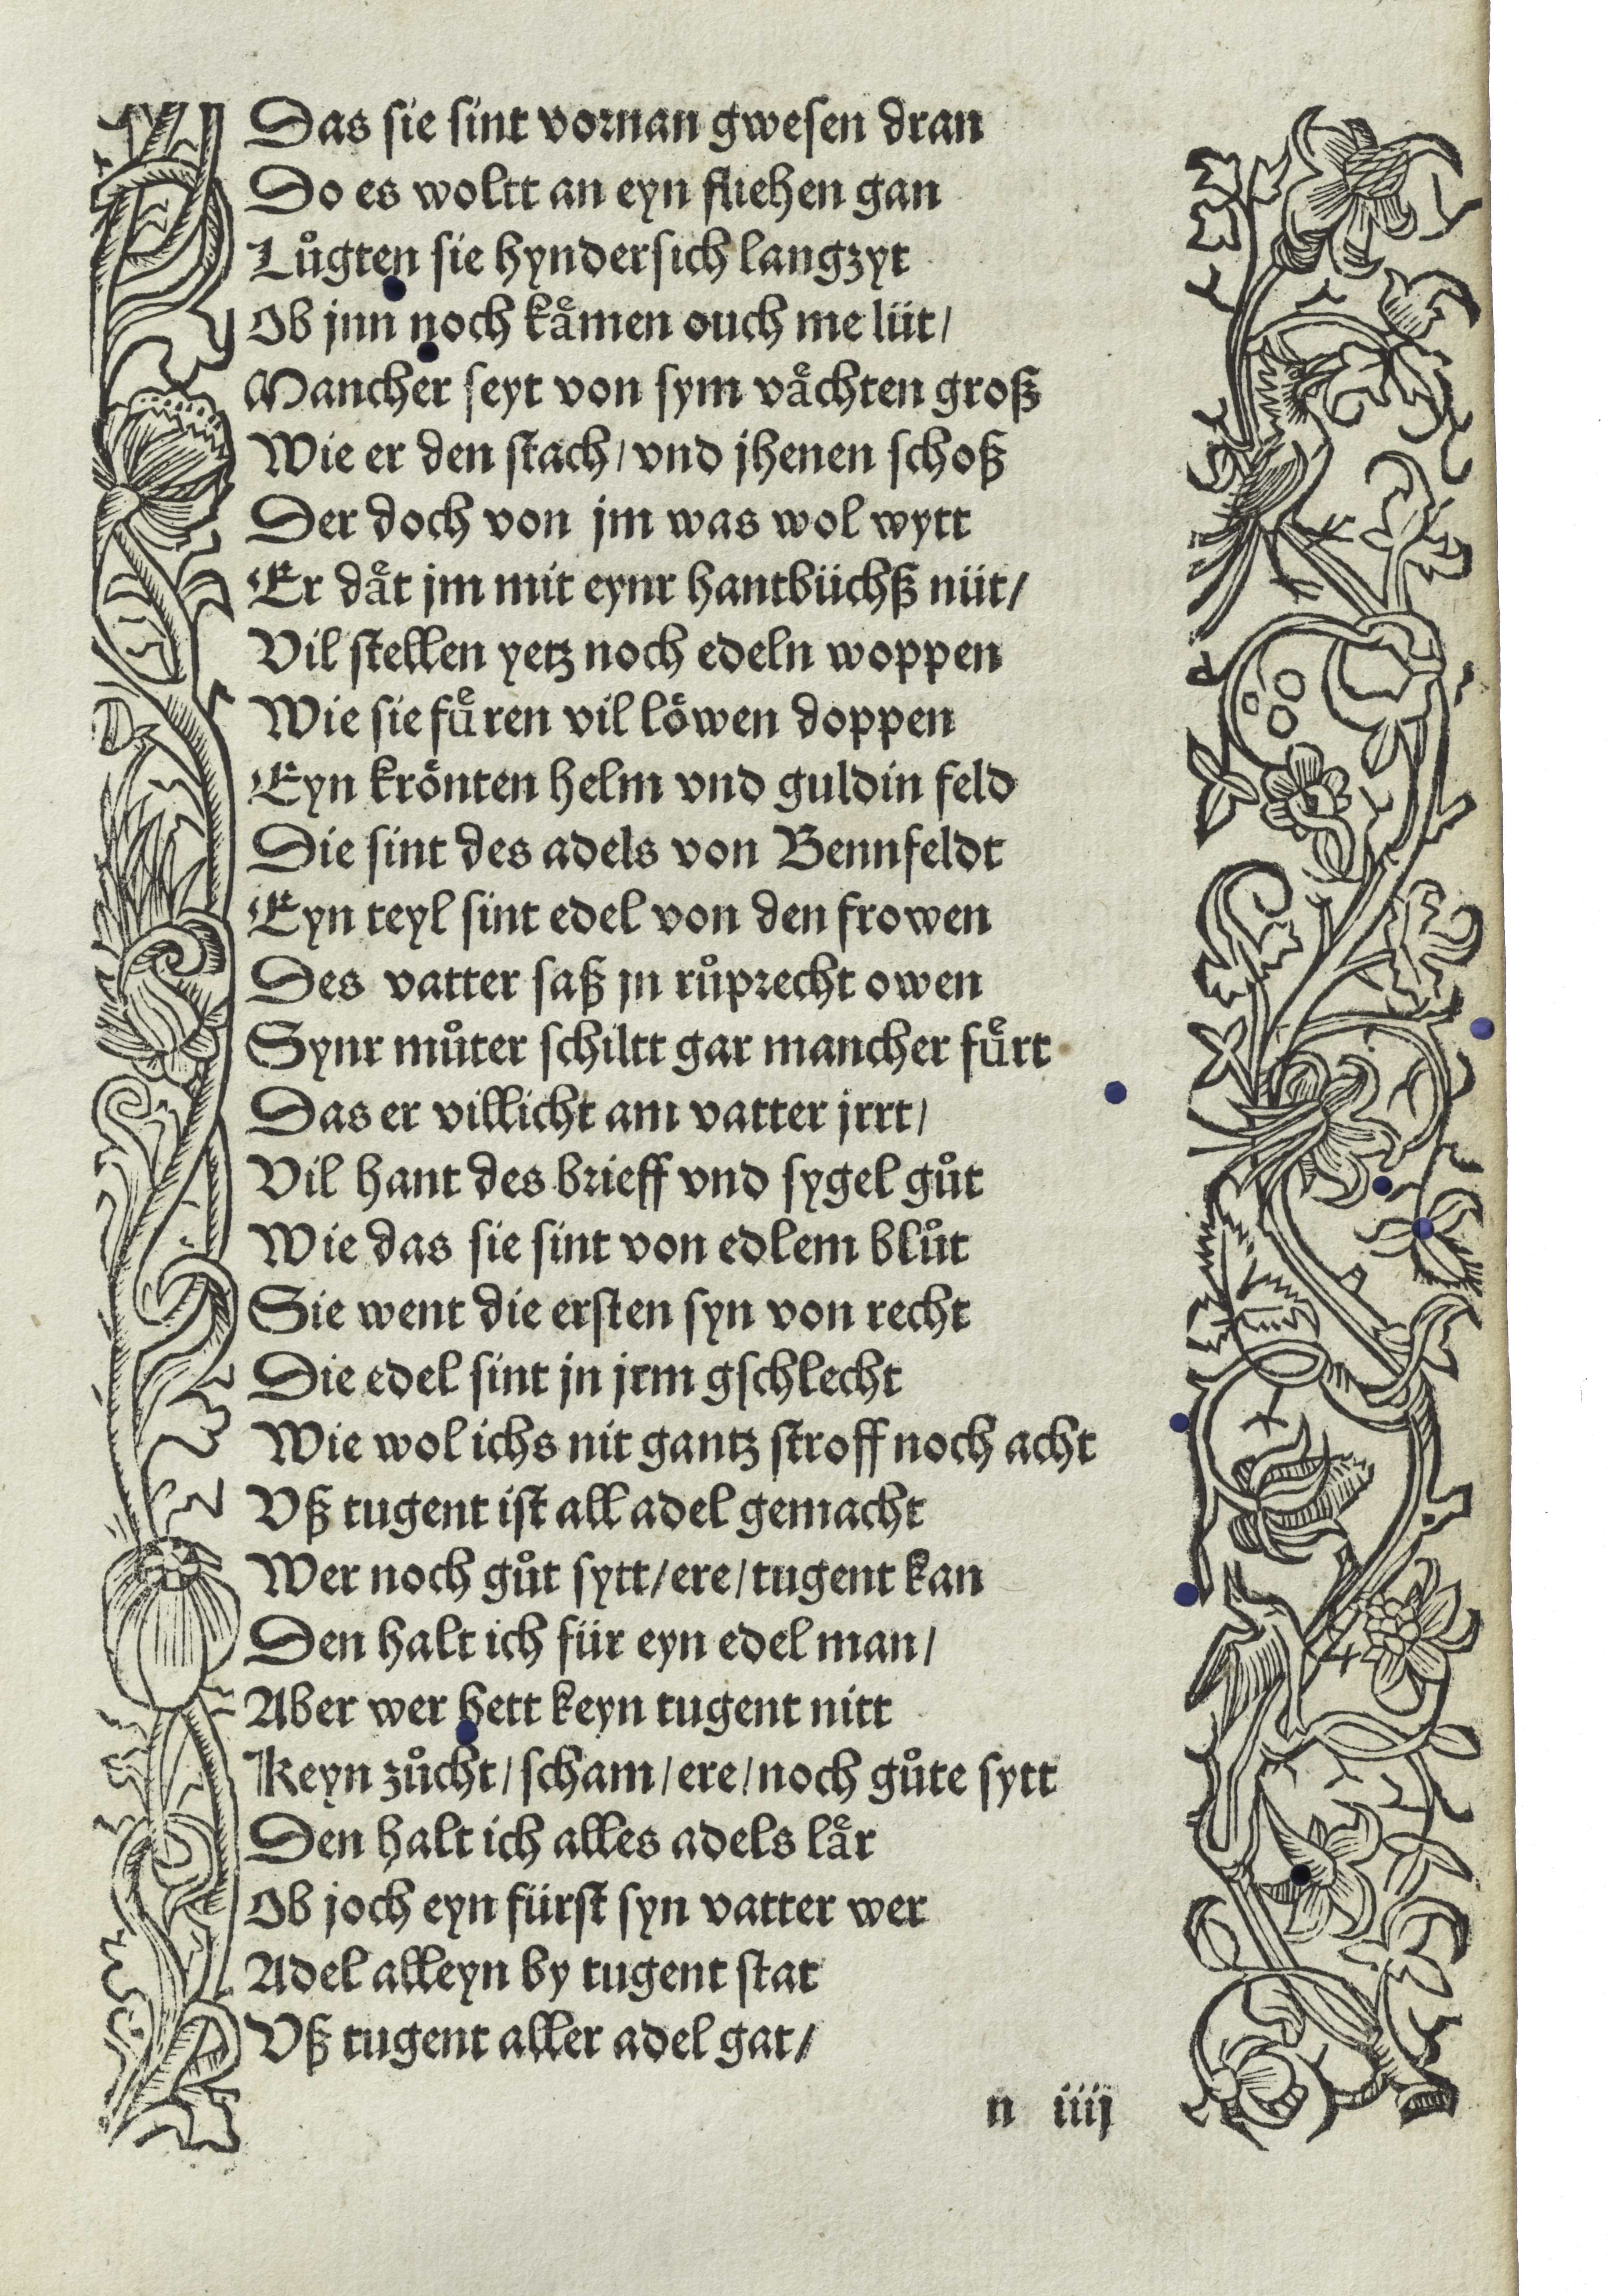 Das sie sint vornan gwesen dran
Do es woltt an eyn fliehen gan
Luͦgten sie hyndersich langzyt
Ob jnn noch kaͤmen ouch me lüt/
Mancher seyt von sym vaͤchten groß
Wie er den stach/ vnd jhenen schoß
Der doch von jm was wol wytt
Er daͤt jm mit eynr hantbüchß nüt/
Vil stellen yetz noch edeln woppen
Wie sie fuͤren vil loͤwen doppen
Eyn kroͤnten helm vnd guldin feld
Die sint des adels von Bennfeldt
Eyn teyl sint edel von den frowen
Des vatter saß jn ruͦprecht owen
Synr muͦter schiltt gar mancher fuͤrt
Das er villicht am vatter jrrt/
Vil hant des brieff vnd sygel guͦt
Wie das sie sint von edlem bluͦt
Sie went die ersten syn von recht
Die edel sint jn jrm gschlecht
Wie wol ichs nit gantz stroff noch acht
Vß tugent ist all adel gemacht
Wer noch guͦt sytt/ ere/ tugent kan
Den halt ich für eyn edel man/
Aber wer hett keyn tugent nitt
Keyn zuͦcht/ scham/ ere/ noch guͦte sytt
Den halt ich alles adels laͤr
Ob joch eyn fürst syn vatter wer
Adel alleyn by tugent stat
Vß tugent aller adel gat/
n iiij